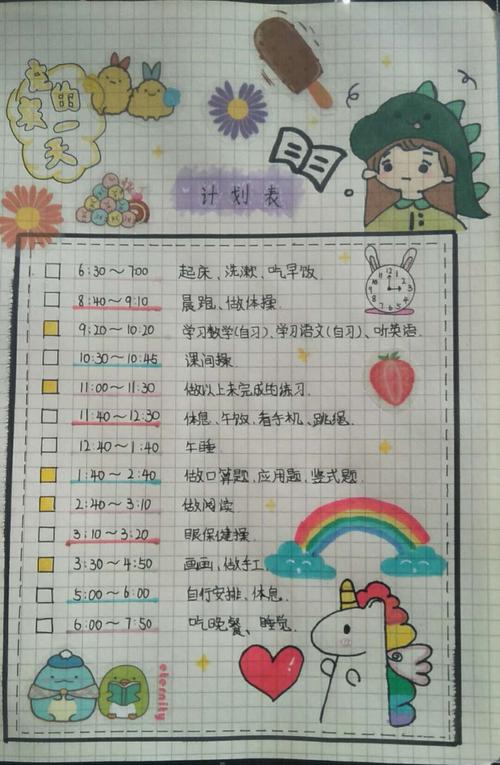 充
曲
表一天
计划表
6:30～700 起床、洗漱、吃早饭
8:40～9:10 晨跑、做体操.
9:20～10:20 学习数学(自习)、学习语文(自习)、听英语.
10:30～10:45 课间操.
11:00～11:30 做以上未完成的练习.
11:40～12:30 休息、午饭、看手机、跳绳.
12:40～1:40 午睡
1:40～2:40 做口算题、应用题、竖式题.
2:40～3:10 做阅读
3:10～3:20 眼保健操.
3:30～4:50 画画、做手工
5:00～6:00 自行安排、休息.
6:00～7:50 吃晚餐、睡觉.
eternity